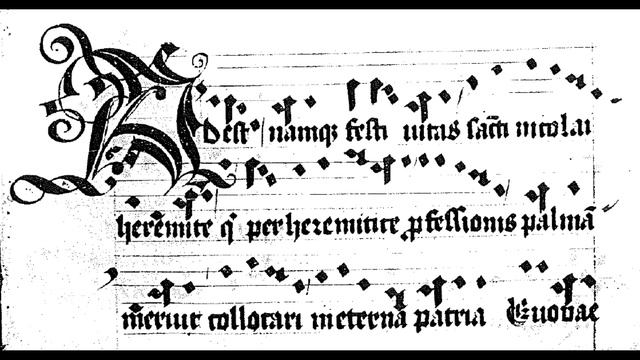 Adest namqꝫ festi uitas sācti nicolai
heremite qͥ per heremitice ꝓfessionis palmā
meruit collocari in eterna patria Euouae